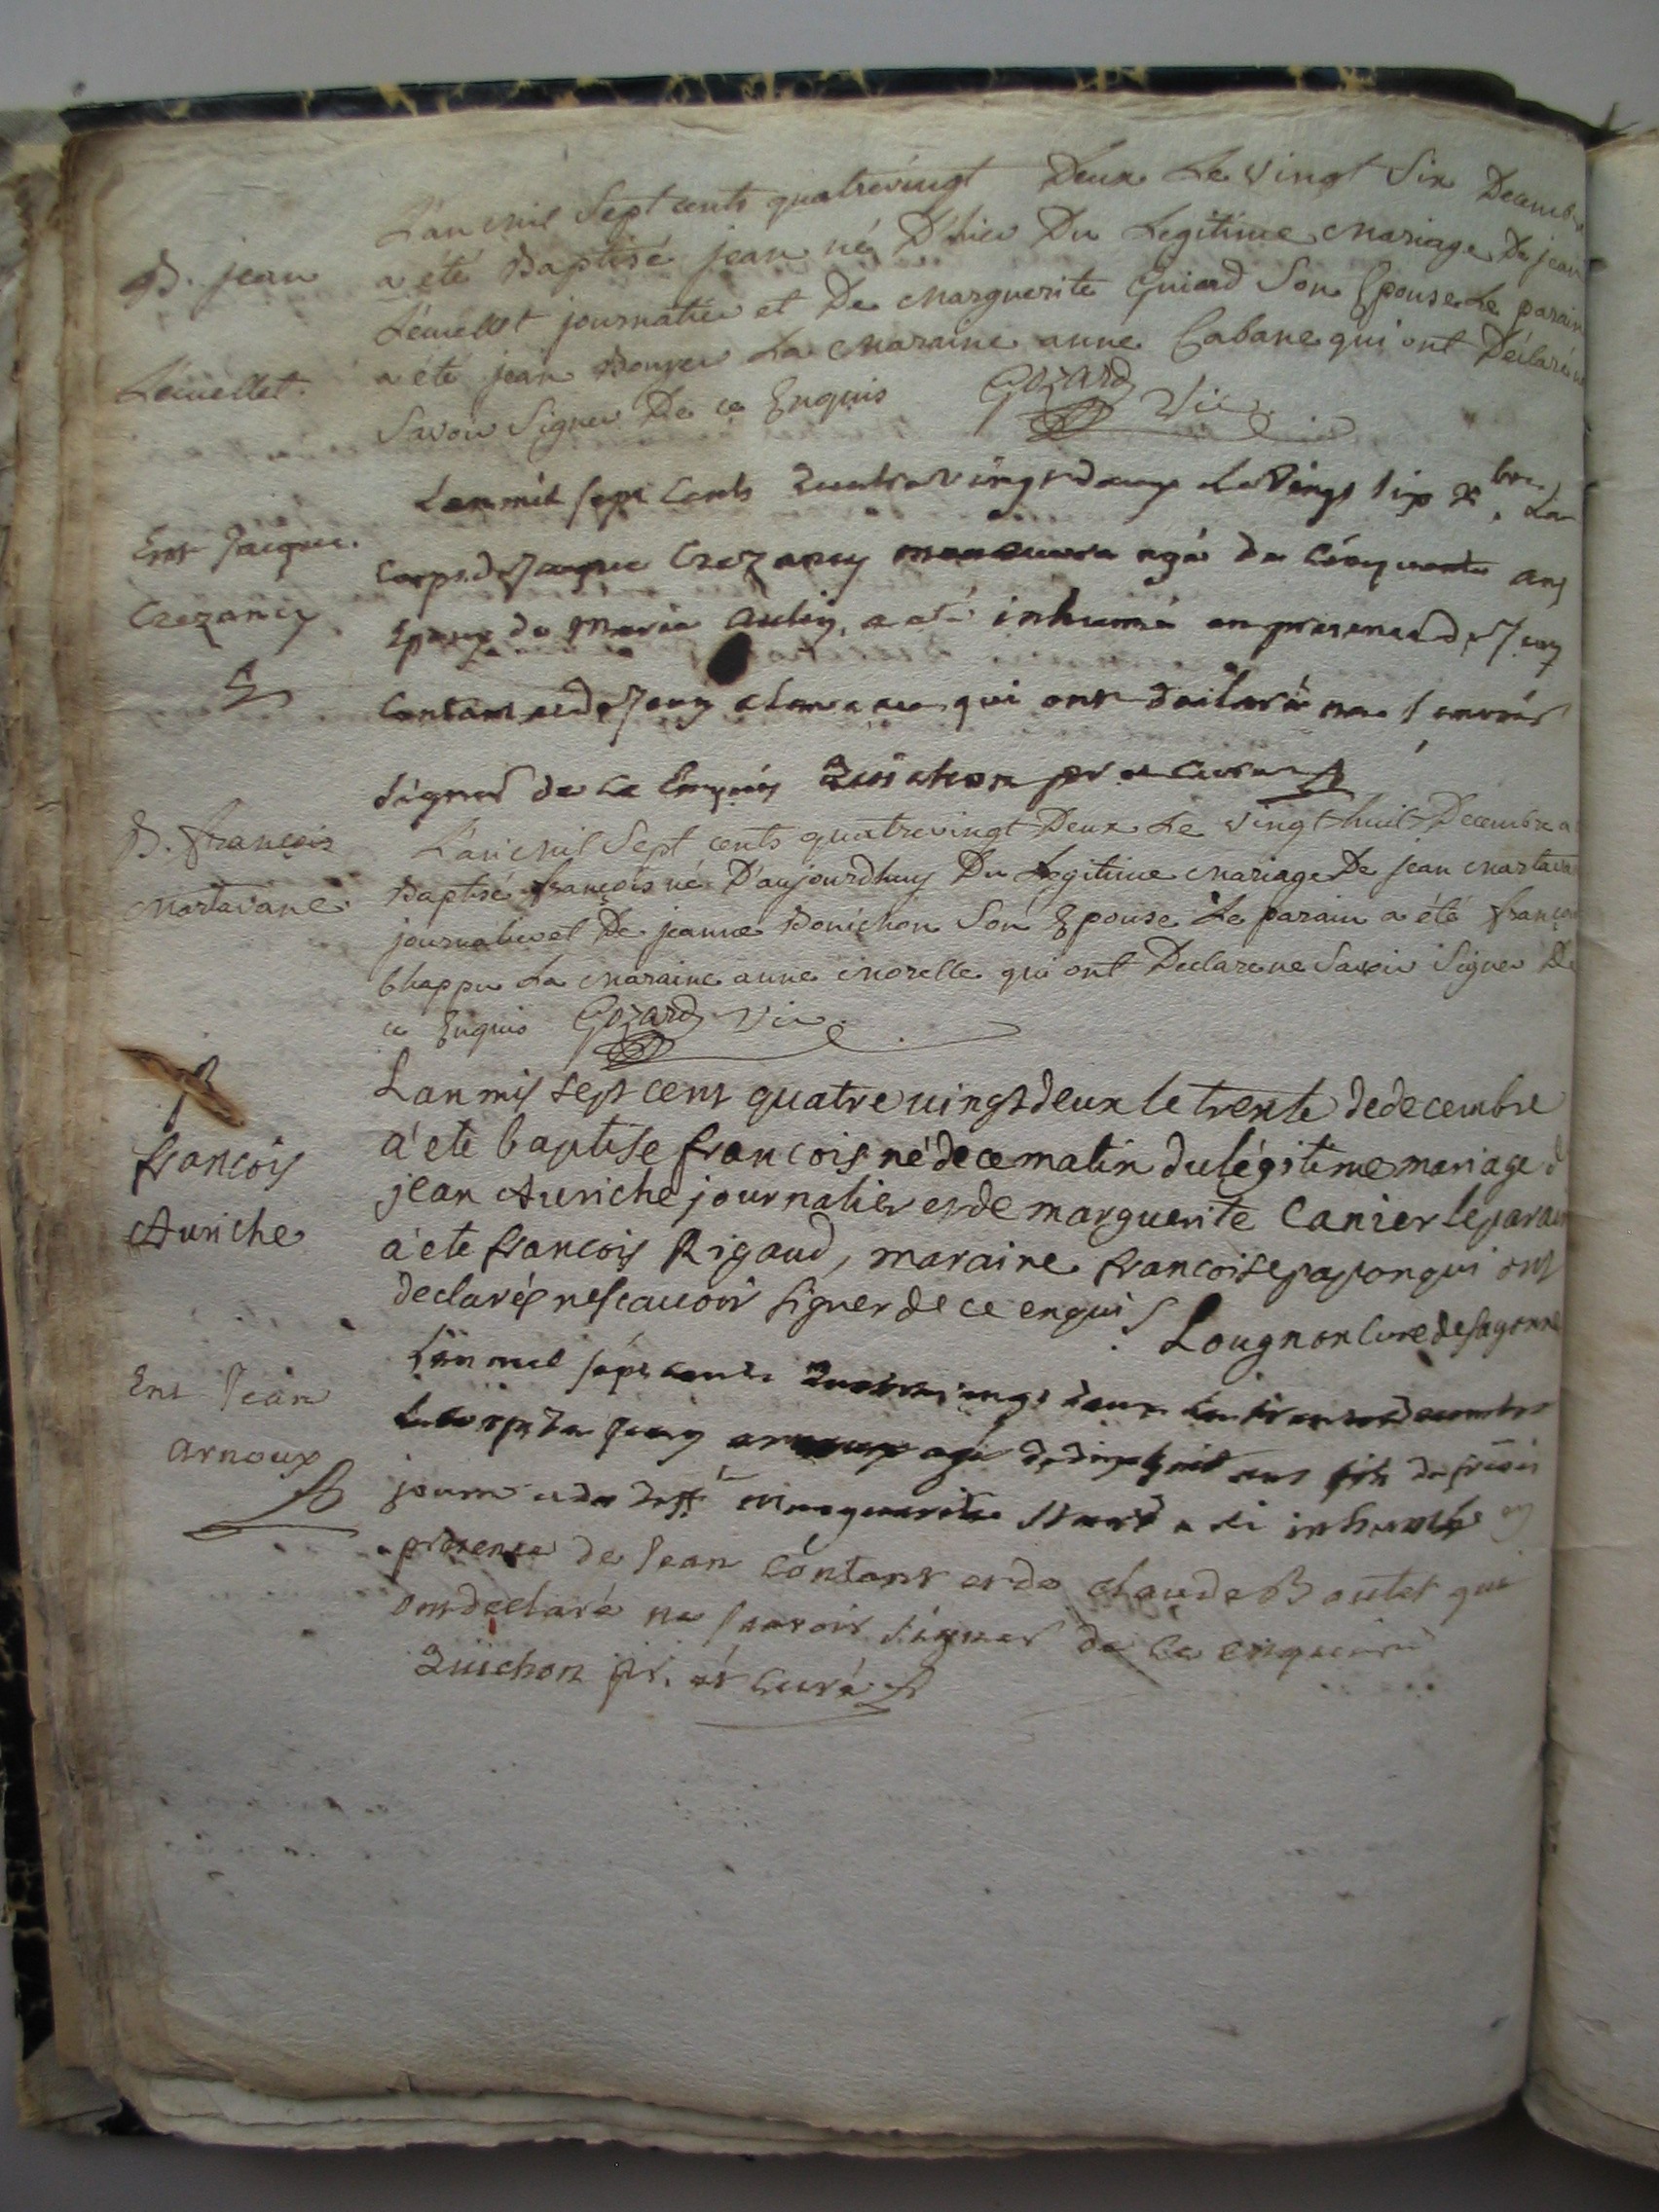 L'an mil Sept cents quatrevingt Deux Le vingt Six Decemb
B. jean
a été Baptisé jean né D'hier Du Legitime Mariage De jean
Lemellet journalier et De Marguerite Guiard Son Epouse Le parain
Lémellet.
a été jean Bouyer La Maraine anne Cabane qui ont Déclaré
Savoir Signer De ce Enquis Gozard Vic.
Lan mil sept Cents Quatre vingt deux Le Vingt six xbre, Le
Ent Jacque.
Corps de Jacque Crezancy manœuvre agé de Cinquante ans
Crezancy
Epoux de Marie Aubin, a eté inhumé en presence de Jean
Contant et de Jean qui ont declaré ne savoir
signer de ce Enquis Quichon pr et curé
B. françois
L'an Mil Sept cents quatrevingt Deux Le vingt huit Decembre a
Baptisé françois né D'aujourdhuy Du Legitime Mariage De jean Martava
Martavane
journalier et De jeanne Bonichon Son Epouse Le parain a été franço
Chappu La Maraine anne Morelle qui ont Declare ne Savoir Signer De
ce Enquis Gozard Vic.
Lan mil sept cent quatre vingt deux le trente de decembre
francois
a'ete baptise francois né de ce matin du légitime mariage d
Auriche
jean Auriche journalier et de marguerite Canier le parain
a'ete francois Rigaud, maraine francoise papon qui ont
declaré ne scauoir signer de ce enquis
Lougnon Cure de Sagonne
Lan mil sept cents Quatre vingt deux Le decembre
Ent Jean
Le Corps de Jean arnoux agé de dix huit ans fils de
arnoux
et de deffte Marguerite a eté inhumé en
presence de Jean Contant et de Claude Boutet qui
ont declaré ne savoir signer de ce enquis
Quichon pr. et curé